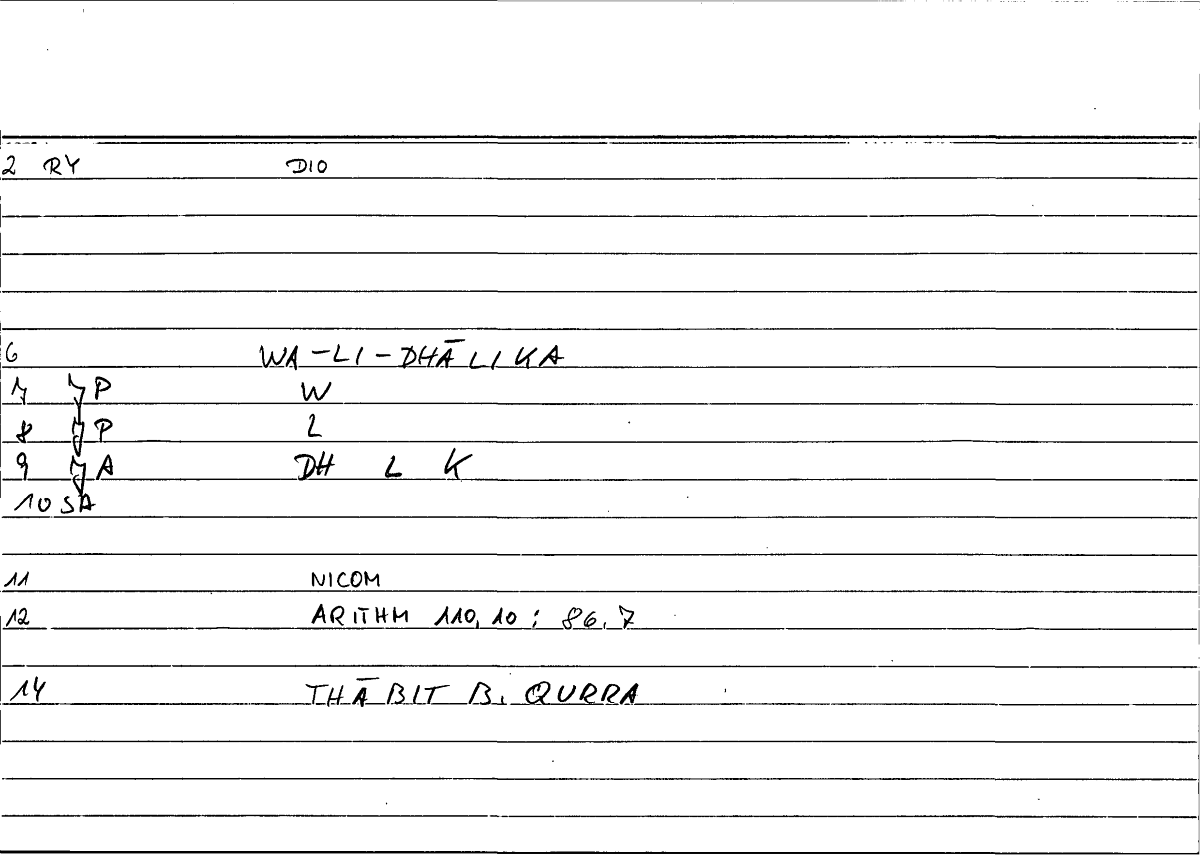 2 RY DIO
6 WA-LI-DHĀLIKA
7 7P W
8 7P L
9 7A DH L K
10 SA
11 NICOM
12 ARITHM 110,10 : 86,7
14 THĀBIT B. QURRA